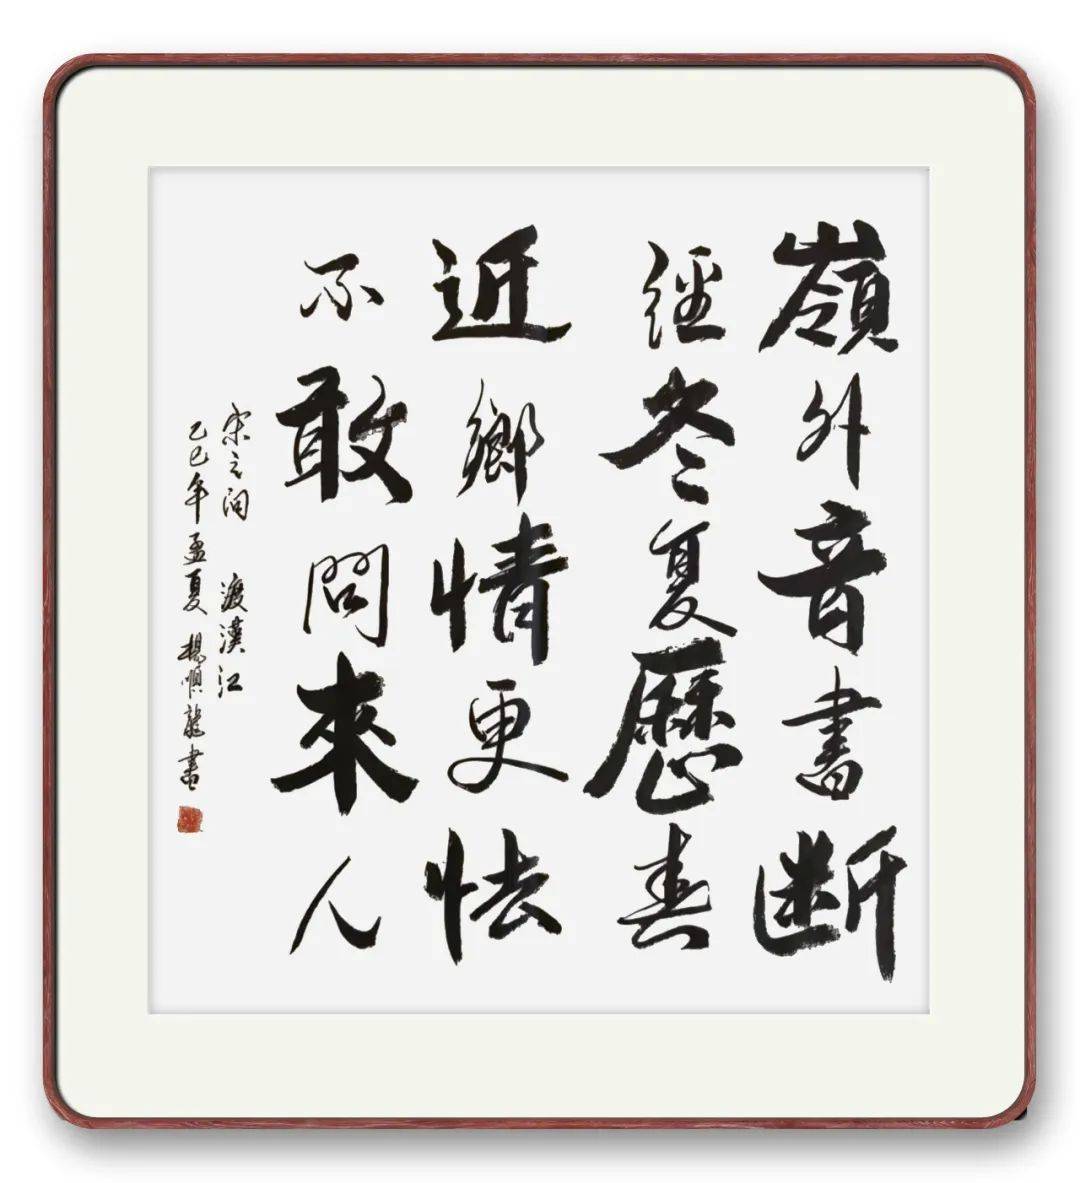 嶺外音書断
經冬夏歷春
近鄉情更怯
不敢問來人
宋之问 渡漢江
乙巳年孟夏 楊順龍書